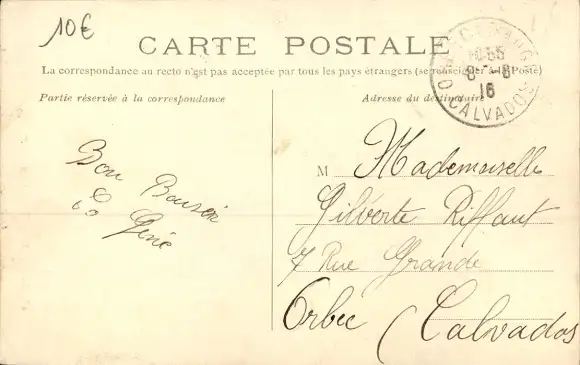 10€
CARTE POSTALE
La correspondance au recto n'est pas acceptée par tous les pays étrangers (se renseigner à la Poste)
Partie réservée à la correspondance
Adresse du destinataire
10 55
8 - 8
16
CALVADOS
Bon
M Mademoiselle
Gilberte Riffaut
7 Rue Grande
Orbec (Calvados